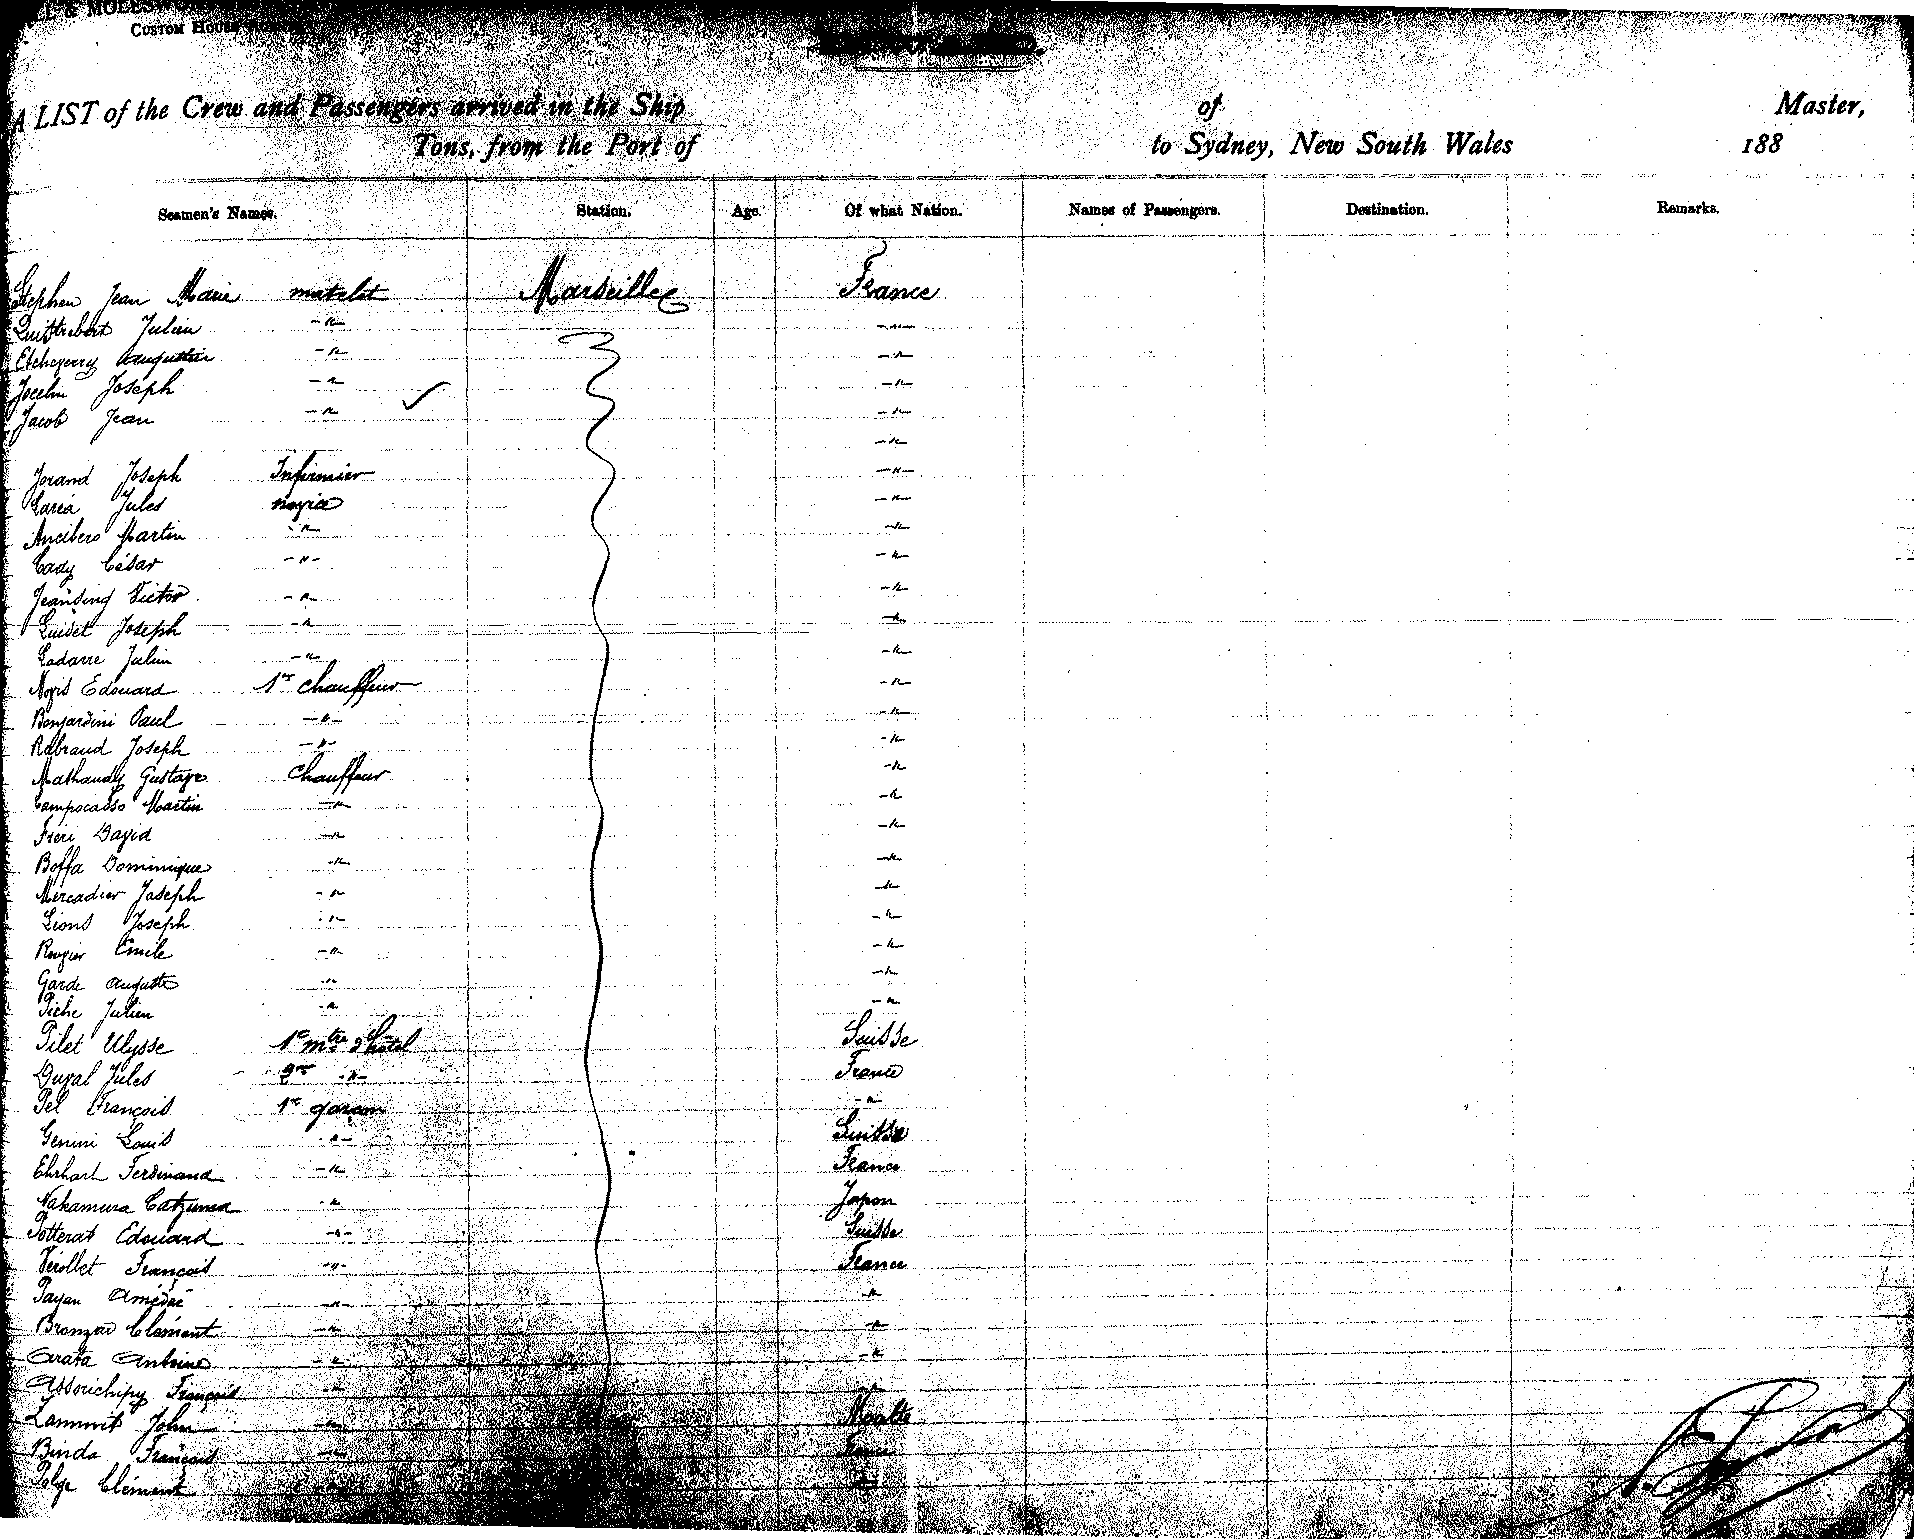 CUSTOM HOUSE
A LIST of the Crew and Passengers arrived in the Ship of Master,
Tons, from the Port of to Sydney, New South Wales 188
Seamen's Names. Station. Age. Of what Nation. Names of Passengers. Destination. Remarks.
Stephen Jean Marie matelot Marseille France
Julien -"- -"-
Etcheverry Augustin -"- -"-
Jocelin Joseph -"- -"-
Jacob Jean -"- -"-
-"-
Jorand Joseph Infirmier -"-
Jules novice -"-
Martin -"- -"-
Cady César -"- -"-
Victor -"- -"-
Guidet Joseph -"- -"-
Ladarre Julien -"- -"-
Edouard 1er chauffeur -"-
Bonjardini Paul -"- -"-
Rabraud Joseph -"- -"-
Gustave chauffeur -"-
Campocasso Martin -"- -"-
Fieri David -"- -"-
Boffa Dominique -"- -"-
Mercadier Joseph -"- -"-
Lions Joseph -"- -"-
Rougier Emile -"- -"-
Garde Auguste -"- -"-
Piche Julien -"- -"-
Pilet Ulysse 1er mtre d'hotel Suisse
Duval Jules 2me -"- France
Pel François 1er garçon -"-
Genini Louis -"- Suisse
Ehrhart Ferdinand -"- France
Nakamura -"- Japon
Potterat Edouard -"- Suisse
Verollet François -"- France
Payan Amédée -"- -"-
Clément -"- -"-
Arata Antoine -"- -"-
François -"- -"-
Zammit John -"- Malte
Binda François -"- France
Clément -"- -"-